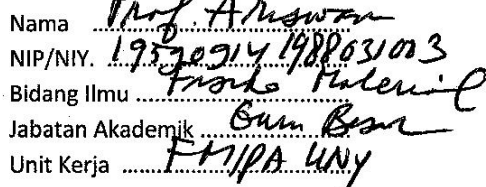 Nama Prof. Ariswan
NIP/NIY. 19590914 198803 1 003
Bidang Ilmu Fisika Material
Jabatan Akademik Guru Besar
Unit Kerja FMIPA UNY